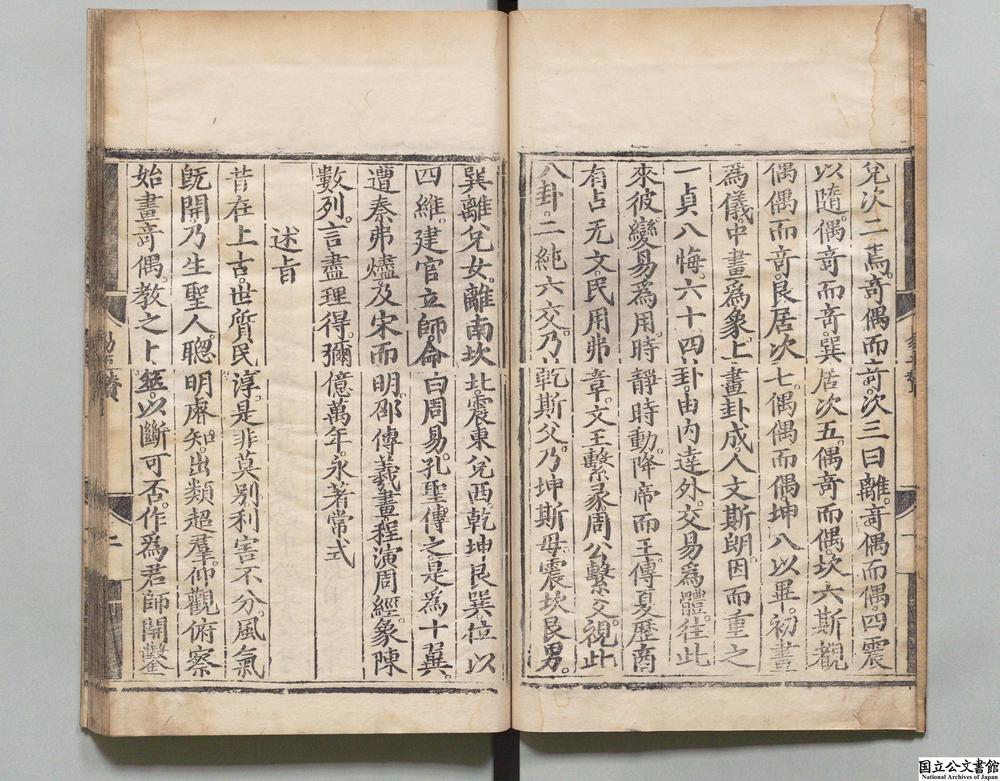 兌次二焉。竒偶而竒。次三曰離。竒偶而偶。四震
以隨。偶竒而竒。巽居次五。偶竒而偶。坎六斯覩
偶偶而竒。艮居次七。偶偶而偶。坤八以畢。初畫
為儀。中畫為象。上畫卦成。人文斯朗。因而重之
一貞八悔。六十四卦。由内達外。交易為體。往此
來彼。變易為用。時靜時動。降帝而王。傳夏歷商
有占无文。民用弗章。文王繫彖。周公繫爻。視此
八卦。二純六交。乃乾斯父。乃坤斯母。震坎艮男。
巽離兌女。離南坎北。震東兌西。乾坤艮巽。位以
四維。建官立師。命曰周易。孔聖傳之。是為十翼。
遭秦弗燼。及宋而明。邵傳羲畫。程演周經。象陳
數列。言盡理得。彌億萬年。永著常式
述旨
昔在上古。世質民淳。是非莫別。利害不分。風氣
旣開。乃生聖人。聰明睿知。出類超羣。仰觀俯察
始畫竒偶。教之卜筮。以斷可否。作為君師。開鑿
二
国立公文書館
National Archives of Japan